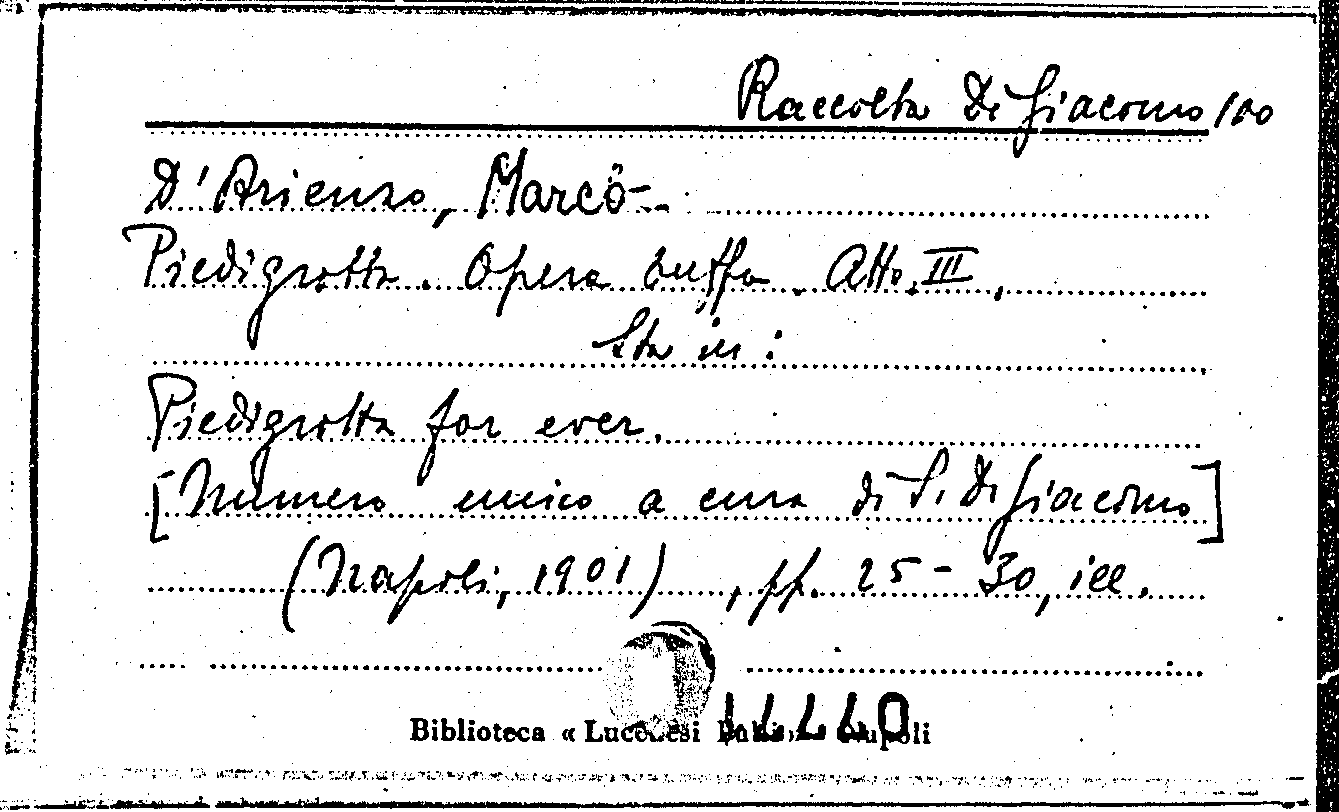 Raccolta Di Giacomo 100
D'Arienzo, Marco.
Piedigrotta. Opera buffa. Atto III.
Sta in:
Piedigrotta for ever.
[Numero unico a cura di S. Di Giacomo]
(Napoli, 1901), pp. 25-30, ill.
Biblioteca « Lucchesi Palli » Napoli